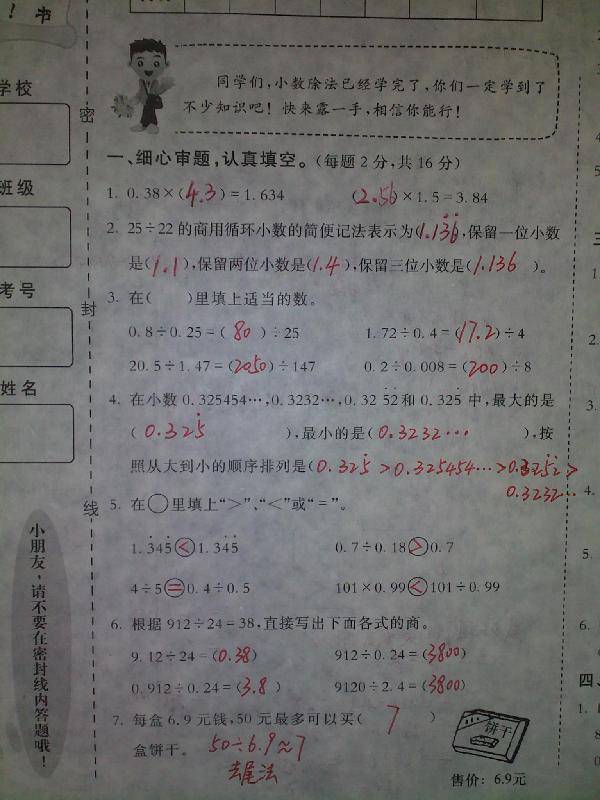 ! 书
学校
班级
考号
姓名
密
封
线
小朋友,请不要在密封线内答题哦!
同学们,小数除法已经学完了,你们一定学到了
不少知识吧!快来露一手,相信你能行!
一、细心审题,认真填空。(每题2分,共16分)
1. 0.38×(4.3)=1.634 (2.56)×1.5=3.84
2. 25÷22的商用循环小数的简便记法表示为(1.13̇6̇),保留一位小数
是(1.1),保留两位小数是(1.4),保留三位小数是(1.136)。
3. 在( )里填上适当的数。
0.8÷0.25=(80)÷25 1.72÷0.4=(17.2)÷4
20.5÷1.47=(2050)÷147 0.2÷0.008=(200)÷8
4. 在小数0.325454…,0.3232…,0.32 5̇2̇和0.325̇中,最大的是
(0.325̇),最小的是(0.3232…),按
照从大到小的顺序排列是(0.325̇>0.325454…>0.325̇2̇>
0.3232…
5. 在○里填上“>”、“<”或“=”。
1.3̇45̇<1.34̇5̇ 0.7÷0.18>0.7
4÷5=0.4÷0.5 101×0.99<101÷0.99
6. 根据912÷24=38,直接写出下面各式的商。
9.12÷24=(0.38) 912÷0.24=(3800)
0.912÷0.24=(3.8) 9120÷2.4=(3800)
7. 每盒6.9元钱,50元最多可以买( 7 )
盒饼干。 50÷6.9≈7
去尾法
饼干
售价: 6.9元